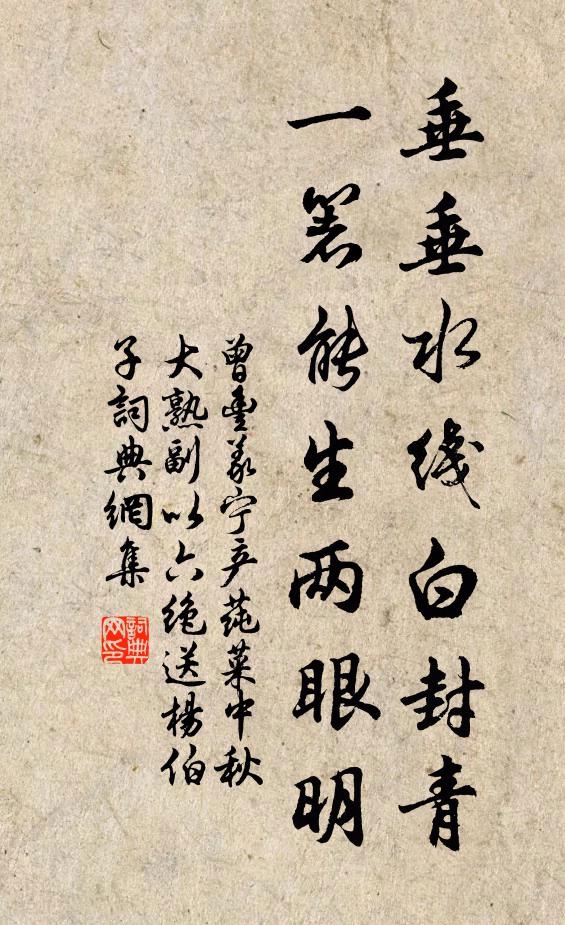 垂垂水线白封青
一箸能生两眼明
曾豊义宁产莼菜中秋
大熟副以六绝送杨伯
子詞典網集
詞典
网印